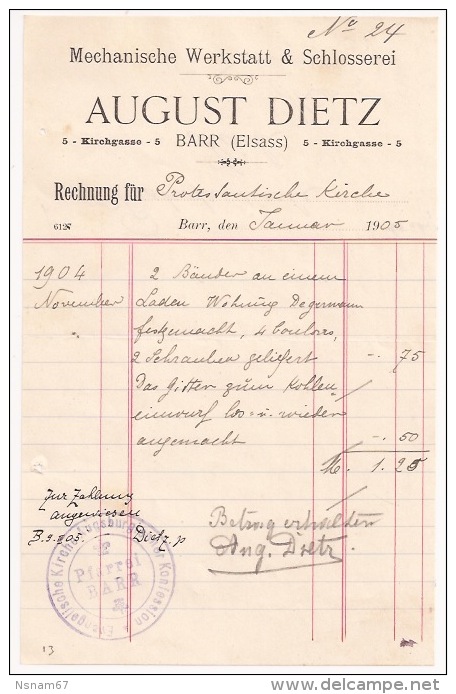 No 24
Mechanische Werkstatt & Schlosserei
AUGUST DIETZ
5 - Kirchgasse - 5 BARR (Elsass) 5 - Kirchgasse - 5
Rechnung für Protestantische Kirche
6127 Barr, den Januar 1905
1904 2 Bänder an einem
November Laden Wohnung Degermann
festgemacht, 4 Boulons,
2 Schrauben geliefert -. 75
Das Gitter zum Kohlen-
einwurf los- u. wieder
angemacht -. 50
M. 1. 25
Zur Zahlung
angewiesen
B. 9. 2. 05. Dietz. p
Betrag erhalten
Aug. Dietz.
Evangelische Kirche Augsburger Konfession
Pfarrei
BARR
13
Nsnam67
delcampe.net